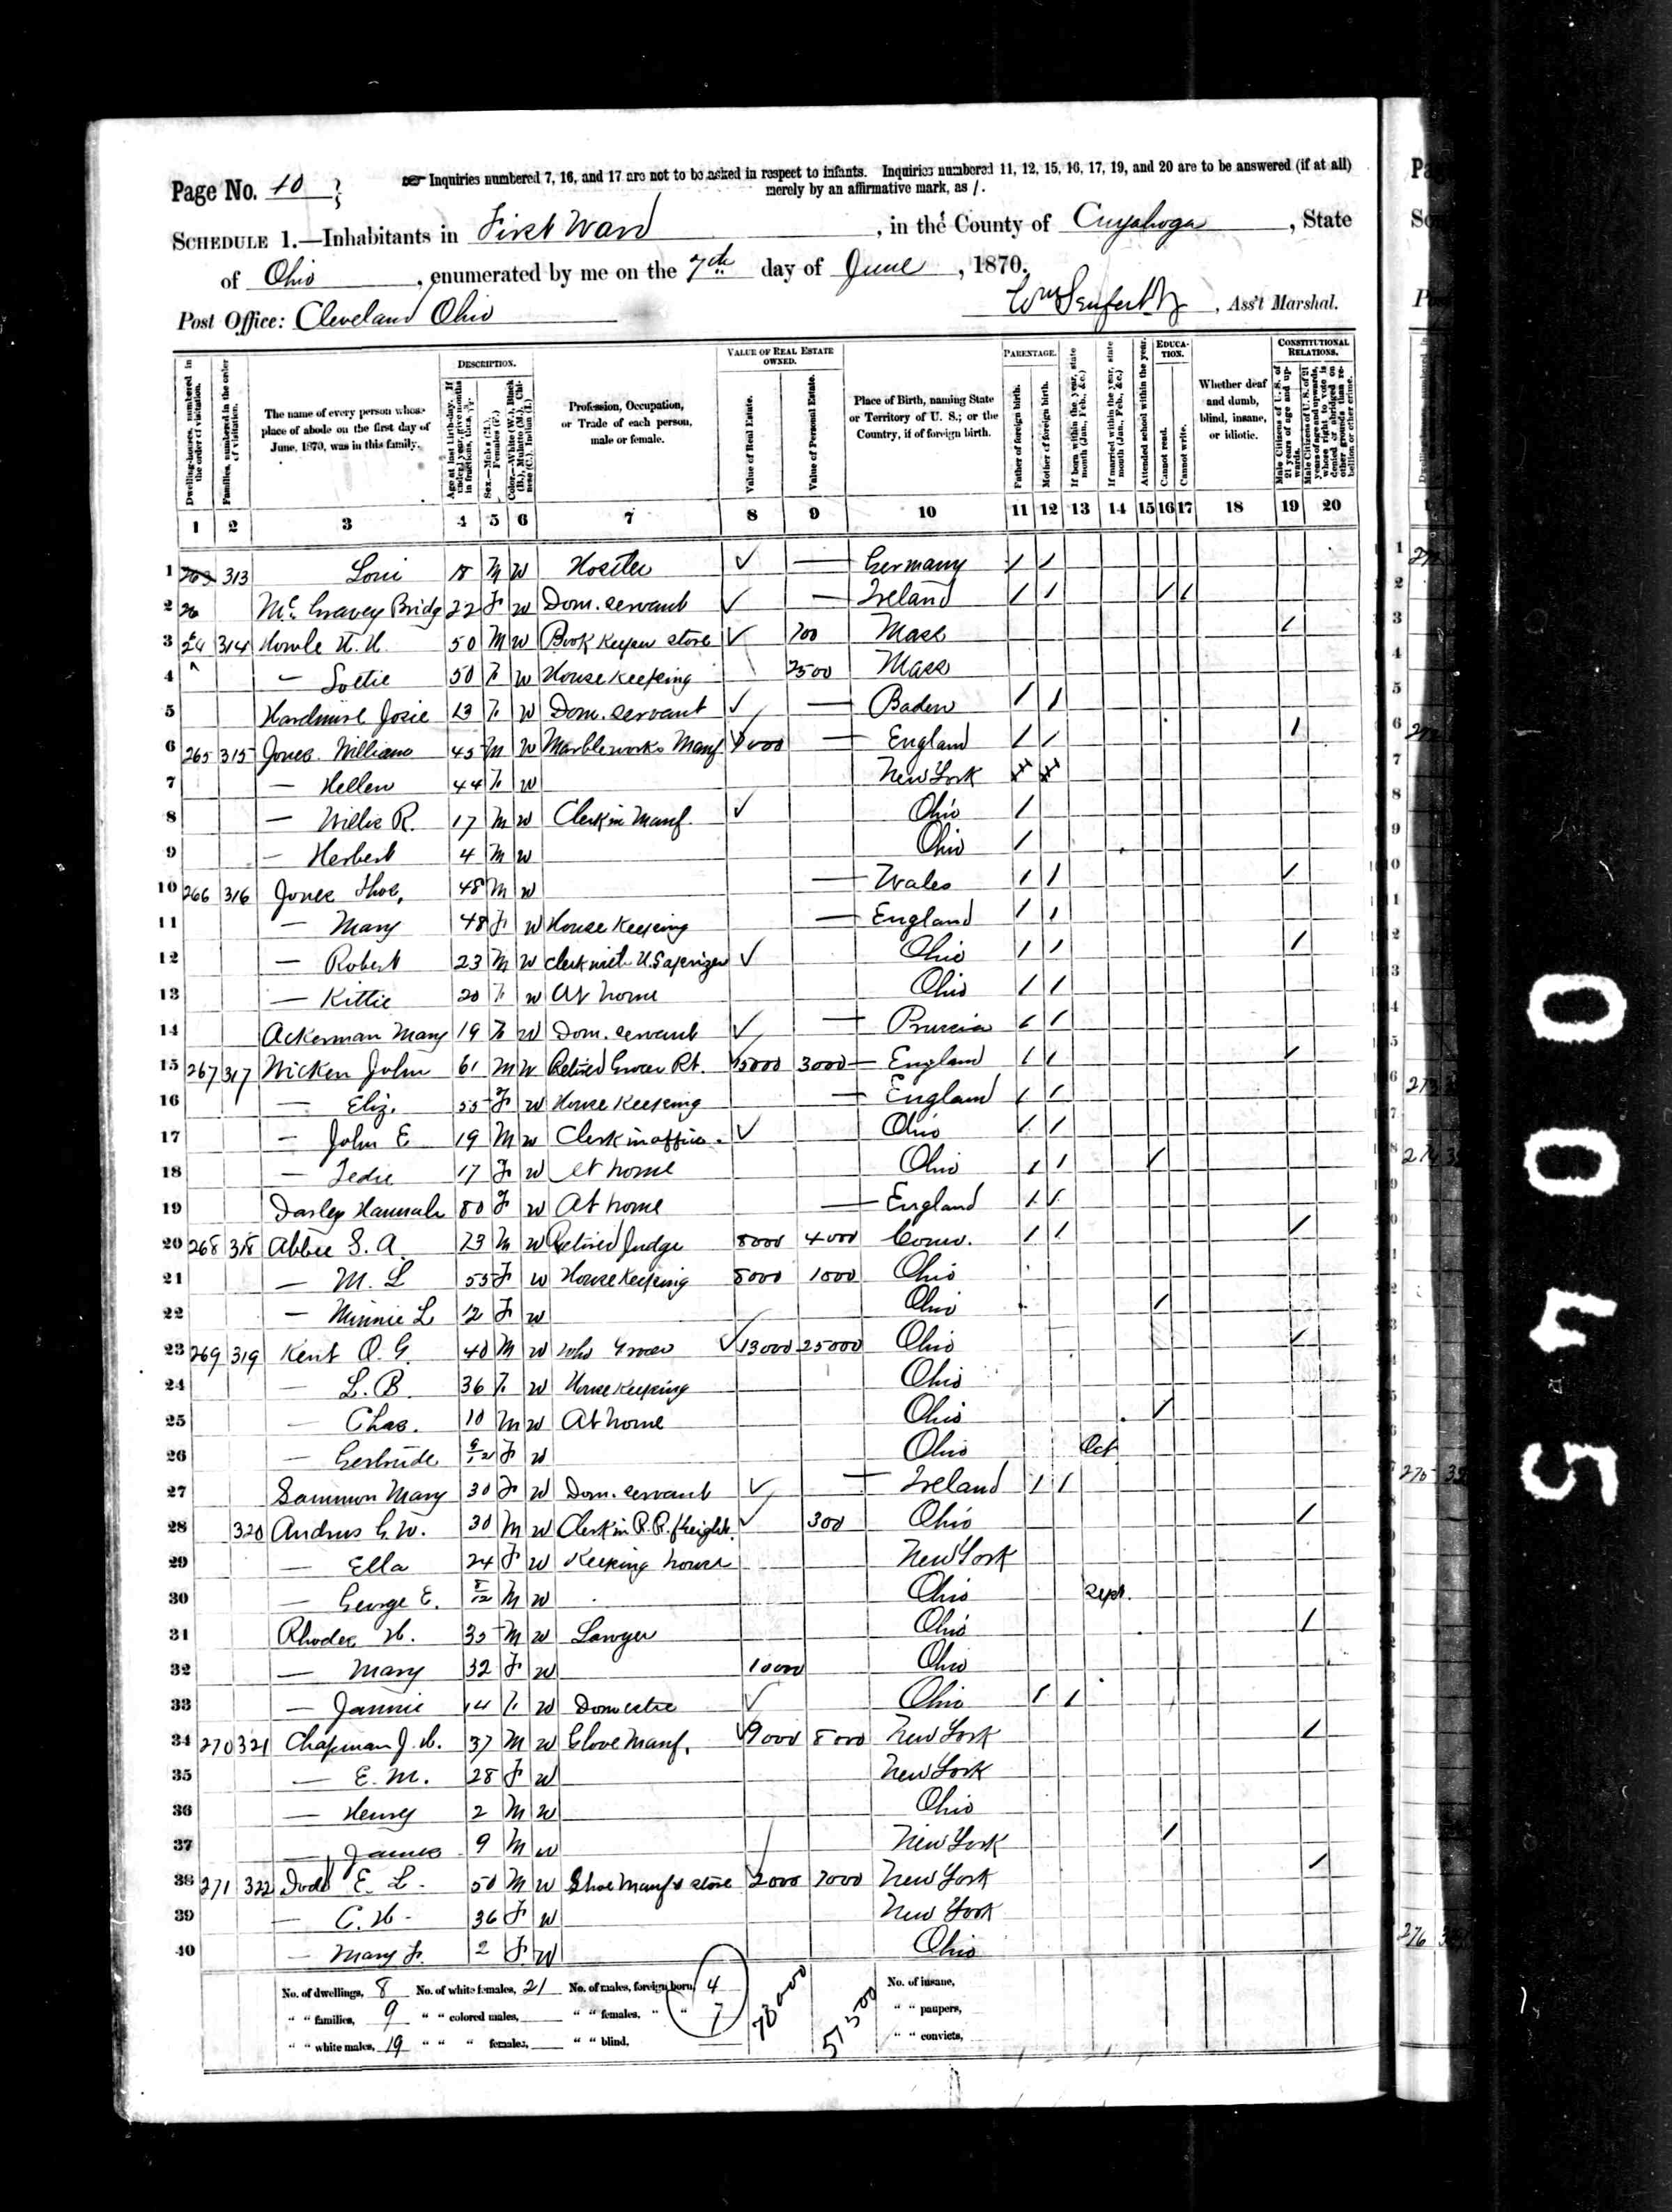 Page No. 10
Inquiries numbered 7, 16, and 17 are not to be asked in respect to infants. Inquiries numbered 11, 12, 15, 16, 17, 19, and 20 are to be answered (if at all)
merely by an affirmative mark, as /.
SCHEDULE 1.—Inhabitants in First Ward, in the County of Cuyahoga, State
of Ohio, enumerated by me on the 7th day of June, 1870.
Post Office: Cleveland Ohio
Wm , Ass't Marshal.
Dwelling-houses, numbered in the order of visitation.
Families, numbered in the order of visitation.
The name of every person whose place of abode on the first day of June, 1870, was in this family.
DESCRIPTION.
Age at last birth-day. If under 1 year, give months in fractions, thus, 3/12.
Sex.—Males (M.), Females (F.)
Color.—White (W.), Black (B.), Mulatto (M.), Chinese (C.), Indian (I.)
Profession, Occupation, or Trade of each person, male or female.
VALUE OF REAL ESTATE OWNED.
Value of Real Estate.
Value of Personal Estate.
Place of Birth, naming State or Territory of U. S.; or the Country, if of foreign birth.
PARENTAGE.
Father of foreign birth.
Mother of foreign birth.
If born within the year, state month (Jan., Feb., &c.)
If married within the year, state month (Jan., Feb., &c.)
Attended school within the year.
EDUCATION.
Cannot read.
Cannot write.
Whether deaf and dumb, blind, insane, or idiotic.
CONSTITUTIONAL RELATIONS.
Male Citizens of U. S. of 21 years of age and upwards.
Male Citizens of U. S. of 21 years of age and upwards, whose right to vote is denied or abridged on other grounds than rebellion or other crime.
1 2 3 4 5 6 7 8 9 10 11 12 13 14 15 16 17 18 19 20
1 263 313 18 M W Hostler — Germany / /
2 26 Bridg 22 F W Dom. servant — Ireland / / / /
3 314 50 M W Book Keeper store 700 Mass /
4 — Lottie 50 F W House Keeping 2500 Mass
5 Josie 13 F W Dom. servant — Baden / /
6 265 315 Jones William 45 M W Marbleworks Manf. — England / / /
7 — Hellen 44 F W New York
8 — Willie R. 17 M W Clerk in Manf. Ohio /
9 — Herbert 4 M W Ohio /
10 266 316 Jones Thos. 48 M W — Wales / / /
11 — Mary 48 F W House Keeping — England / /
12 — Robert 23 M W Clerk Ohio / / /
13 — Kittie 20 F W At home Ohio / /
14 Ackerman Mary 19 F W Dom. servant — Prussia / /
15 267 317 Wicken John 61 M W Retired Grocer 3000 — England / / /
16 — Eliz. 55 F W House Keeping — England / /
17 — John E 19 M W Clerk in office Ohio / /
18 — 17 F W At home Ohio / / /
19 Hannah 80 F W At home — England / /
20 268 318 Abbee S. A. 73 M W Retired Judge 8000 4000 Conn. / / /
21 — M. L 55 F W House Keeping 8000 1000 Ohio
22 — Minnie L 12 F W Ohio /
23 269 319 Kent O. G. 40 M W Grocer 13000 25000 Ohio /
24 — L. B. 36 F W House Keeping Ohio
25 — Chas. 10 M W At home Ohio /
26 — Gertrude F W Ohio Oct
27 Sammon Mary 30 F W Dom. servant — Ireland / /
28 320 Andrus G. W. 30 M W Clerk in R. R. freight. 300 Ohio /
29 — Ella 24 F W Keeping house New York
30 — George E. M W Ohio Sept.
31 Rhodes H. 35 M W Lawyer Ohio /
32 — Mary 32 F W 10000 Ohio
33 — Jannie 14 F W Domestic Ohio / /
34 270 321 Chapman J. 37 M W Manf. 9000 8000 New York /
35 — E. M. 28 F W New York
36 — Henry 2 M W Ohio
37 — James 9 M W New York /
38 271 322 Dodd E. L. 50 M W Shoe Manf & store 2000 7000 New York /
39 — C. H. 36 F W New York
40 — Mary F. 2 F W Ohio
No. of dwellings, 8 No. of white females, 21 No. of males, foreign born, 4 No. of insane,
" " families, 9 " " colored males, " " females, " " 7 " " paupers,
" " white males, 19 " " " females, " " blind, " " convicts,
51500
54004 5